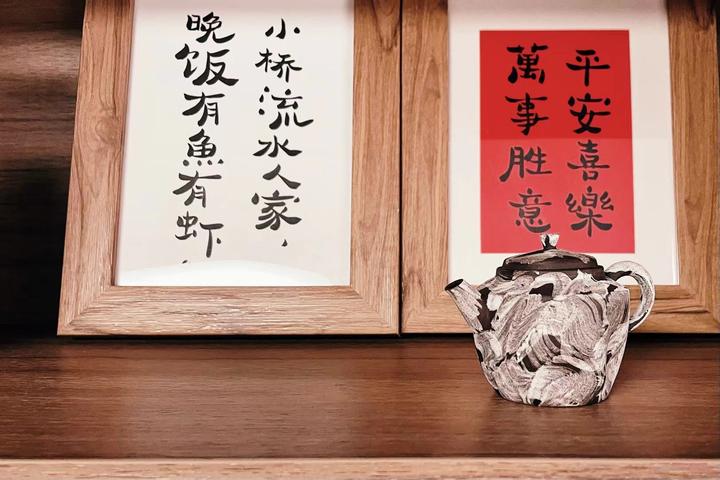 小桥流水人家，
晚饭有魚有虾
平安喜樂
萬事胜意